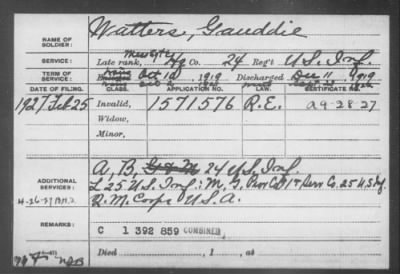 NAME OF SOLDIER: Watters, Gauddie
SERVICE: Late rank, Hq Co. 24 Reg't U.S. Inf.
TERM OF SERVICE: Oct 1919 Discharged Dec 11 1919
DATE OF FILING. CLASS. APPLICATION NO. LAW. CERTIFICATE NO.
1927 Feb 25 Invalid, 1571576 R.E. A 9-28-27
Widow,
Minor,
ADDITIONAL SERVICES: A, B, G & M 24 U.S. Inf.
L 25 U.S. Inf; M. G. Prov Co 1st Serv Co. 25 U.S. Inf.
4-26-27 Q. M. Corps U.S.A.
REMARKS: C 1 392 859 COMBINED
Died , 1 , at